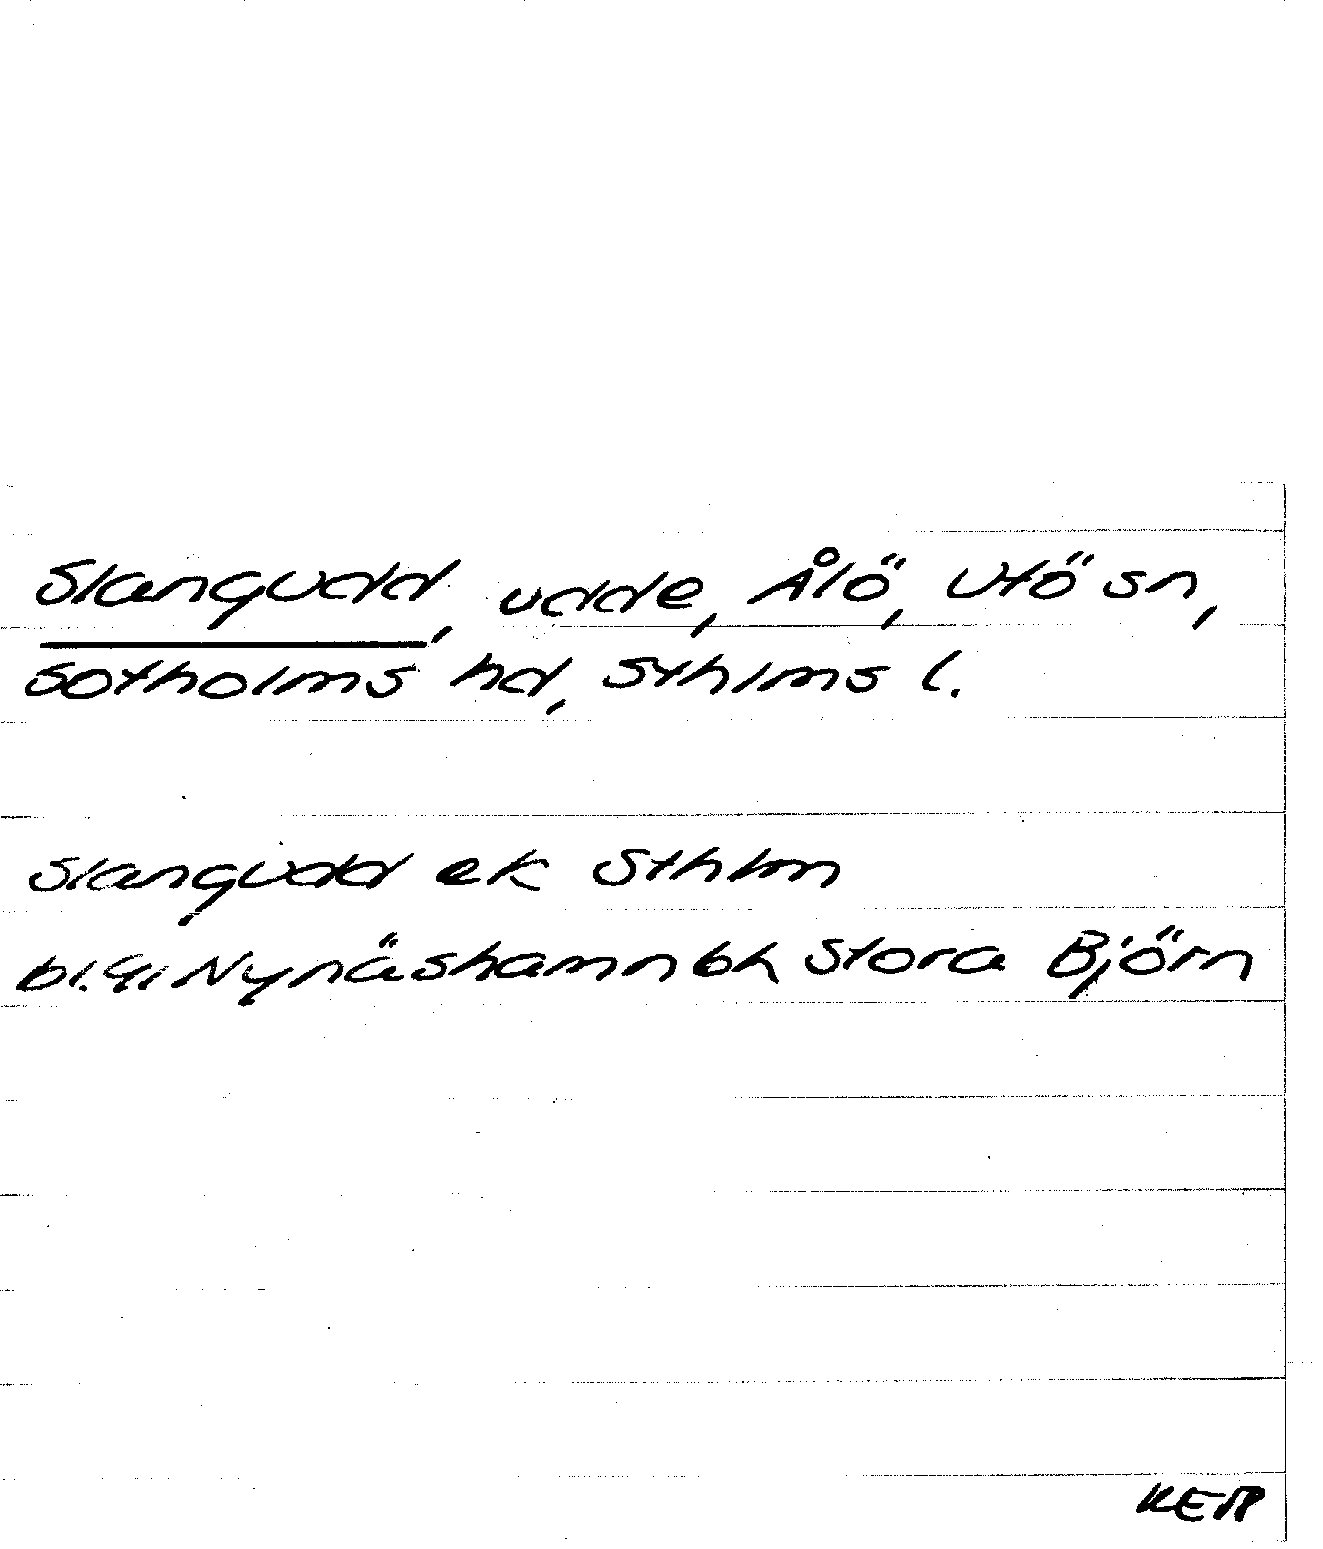 Slangudd, udde, Ålö, Utö sn,
Sotholms hd, Sthlms l.
Slangudd ek Sthlm
bl. Nynäshamn bk Stora Björn